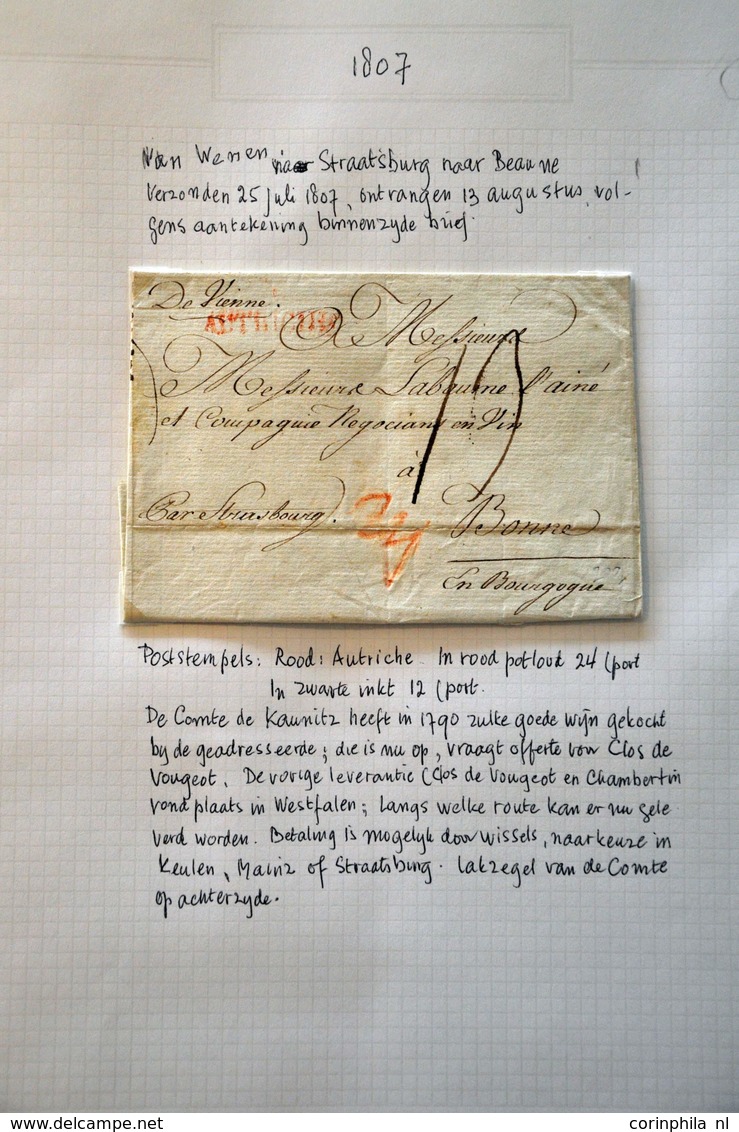 1807
Van Wenen naar Straatsburg naar Beaune
Verzonden 25 juli 1807, ontvangen 13 augustus, vol-
gens aantekening binnenzyde brief.
De Vienne.
AUTRICHE
A Messieurs
Messieurs Labaume l'ainé
et Compagnie Negocians en Vin
à
Par Strasbourg.
Bonne
En Bourgogne
Poststempels: Rood: Autriche. In rood potlood 24 (port
In zwarte inkt 12 (port.
De Comte de Kaunitz heeft in 1790 zulke goede wijn gekocht
by de geadresseerde; die is nu op, vraagt offerte voor Clos de
Vougeot. De vorige leverantie (Clos de Vougeot en Chambertin
vond plaats in Westfalen; langs welke route kan er nu gele
verd worden. Betaling is mogelyk door wissels, naar keuze in
Keulen, Mainz of Straatsburg. Lakzegel van de Comte
op achterzyde.
DELCAMPE.NET
corinphila nl